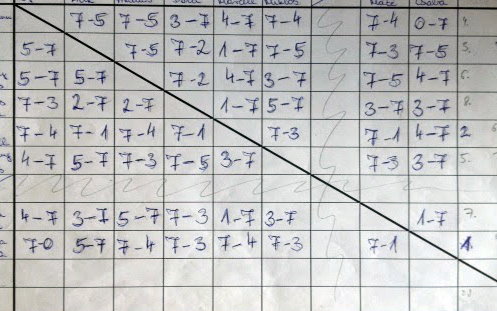 7-5 7-5 3-7 4-7 7-4 7-4 0-7
5-7 7-5 7-2 1-7 7-5 7-3 7-5
5-7 5-7 7-2 4-7 3-7 7-5 4-7
7-3 2-7 2-7 1-7 5-7 3-7 3-7
7-4 7-1 7-4 7-1 7-3 7-1 4-7 2
4-7 5-7 7-3 7-5 3-7 7-3 3-7
4-7 3-7 5-7 7-3 1-7 3-7 1-7 7.
7-0 5-7 7-4 7-3 7-4 7-3 7-1 1.